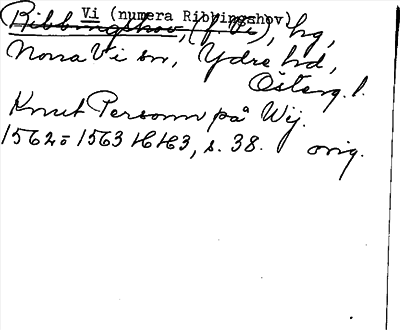 Vi (numera Ribbingshov)
Ribbingshov, (f. Vi), hg,
Norra Vi sn, Ydre hd,
Österg. l.
Knut Persson på Wij.
1562 = 1563 H H3, s. 38. orig.